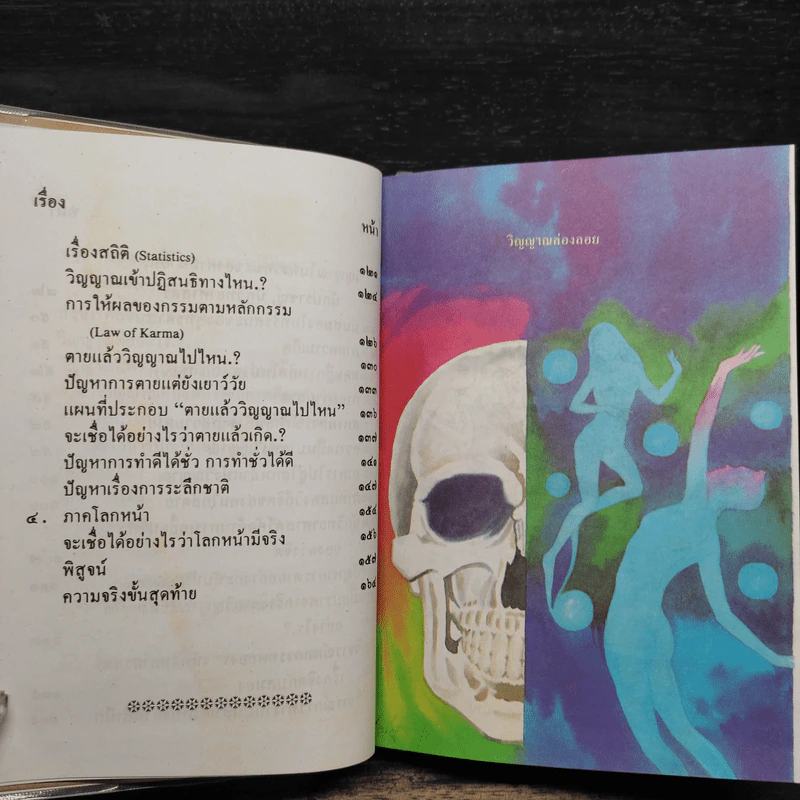 เรื่อง
หน้า
เรื่องสถิติ (Statistics) ๑๒๑
วิญญาณเข้าปฏิสนธิทางไหน.? ๑๒๔
การให้ผลของกรรมตามหลักกรรม
(Law of Karma) ๑๒๖
ตายแล้ววิญญาณไปไหน.? ๑๓๐
ปัญหาการตายแต่ยังเยาว์วัย ๑๓๓
แผนที่ประกอบ “ตายแล้ววิญญาณไปไหน” ๑๓๖
จะเชื่อได้อย่างไรว่าตายแล้วเกิด.? ๑๓๗
ปัญหาการทำดีได้ชั่ว การทำชั่วได้ดี ๑๔๑
ปัญหาเรื่องการระลึกชาติ ๑๔๗
๔. ภาคโลกหน้า ๑๕๔
จะเชื่อได้อย่างไรว่าโลกหน้ามีจริง ๑๕๖
พิสูจน์ ๑๕๗
ความจริงขั้นสุดท้าย ๑๖๔
วิญญาณท่องลอย